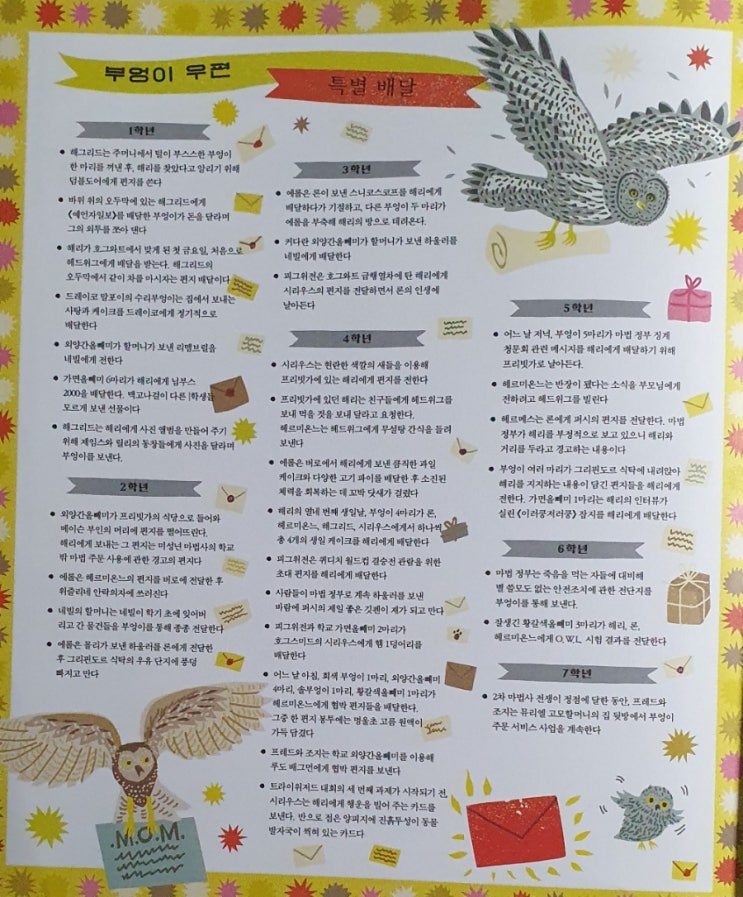 부엉이 우편
특별 배달
1학년
● 해그리드는 주머니에서 털이 부스스한 부엉이
한 마리를 꺼낸 후, 해리를 찾았다고 알리기 위해
덤블도어에게 편지를 쓴다
● 바위 위의 오두막에 있는 해그리드에게
《예언자일보》를 배달한 부엉이가 돈을 달라며
그의 외투를 쪼아 댄다
● 해리가 호그와트에서 맞게 된 첫 금요일, 처음으로
헤드위그에게 배달을 받는다. 해그리드의
오두막에서 같이 차를 마시자는 편지 배달이다
● 드레이코 말포이의 수리부엉이는 집에서 보내는
사탕과 케이크를 드레이코에게 정기적으로
배달한다
● 외양간올빼미가 할머니가 보낸 리멤브럴을
네빌에게 전한다
● 가면올빼미 6마리가 해리에게 님부스
2000을 배달한다. 맥고나걸이 다른 학생들
모르게 보낸 선물이다
● 해그리드는 해리에게 사진 앨범을 만들어 주기
위해 제임스와 릴리의 동창들에게 사진을 달라며
부엉이를 보낸다.
2학년
● 외양간올빼미가 프리빗가의 식당으로 들어와
메이슨 부인의 머리에 편지를 떨어뜨린다.
해리에게 보내는 그 편지는 미성년 마법사의 학교
밖 마법 주문 사용에 관한 경고의 편지다
● 에롤은 헤르미온느의 편지를 버로에 전달한 후
위즐리네 안락의자에 쓰러진다
● 네빌의 할머니는 네빌이 학기 초에 잊어버
리고 간 물건들을 부엉이를 통해 종종 전달한다
● 에롤은 몰리가 보낸 하울러를 론에게 전달한
후 그리핀도르 식탁의 우유 단지에 풍덩
빠지고 만다
.M.O.M.
3학년
● 에롤은 론이 보낸 스니코스코프를 해리에게
배달하다가 기절하고, 다른 부엉이 두 마리가
에롤을 부축해 해리의 방으로 데려온다.
● 커다란 외양간올빼미가 할머니가 보낸 하울러를
네빌에게 배달한다
● 피그위전은 호그와트 급행열차에 탄 해리에게
시리우스의 편지를 전달하면서 론의 인생에
날아든다
4학년
● 시리우스는 현란한 색깔의 새들을 이용해
프리빗가에 있는 해리에게 편지를 전한다
● 프리빗가에 있던 해리는 친구들에게 헤드위그를
보내 먹을 것을 보내 달라고 요청한다.
헤르미온느는 헤드위그에게 무설탕 간식을 들려
보낸다
● 에롤은 버로에서 해리에게 보낸 큼직한 과일
케이크와 다양한 고기 파이를 배달한 후 소진된
체력을 회복하는 데 꼬박 닷새가 걸렸다
● 해리의 열네 번째 생일날, 부엉이 4마리가 론,
헤르미온느, 해그리드, 시리우스에게서 하나씩
총 4개의 생일 케이크를 해리에게 배달한다
● 피그위전은 퀴디치 월드컵 결승전 관람을 위한
초대 편지를 해리에게 배달한다
● 사람들이 마법 정부로 계속 하울러를 보낸
바람에 퍼시의 제일 좋은 깃펜이 재가 되고 만다
● 피그위전과 학교 가면올빼미 2마리가
호그스미드의 시리우스에게 햄 1덩어리를
배달한다
● 어느 날 아침, 회색 부엉이 1마리, 외양간올빼미
4마리, 솔부엉이 1마리, 황갈색올빼미 1마리가
헤르미온느에게 협박 편지들을 배달한다.
그중 한 편지 봉투에는 멍울초 고름 원액이
가득 담겼다
● 프레드와 조지는 학교 외양간올빼미를 이용해
루도 배그먼에게 협박 편지를 보낸다
● 트라이위저드 대회의 세 번째 과제가 시작되기 전,
시리우스는 해리에게 행운을 빌어 주는 카드를
보낸다. 반으로 접은 양피지에 진흙투성이 동물
발자국이 찍혀 있는 카드다
5학년
● 어느 날 저녁, 부엉이 5마리가 마법 정부 징계
청문회 관련 메시지를 해리에게 배달하기 위해
프리빗가로 날아든다.
● 헤르미온느는 반장이 됐다는 소식을 부모님에게
전하려고 헤드위그를 빌린다
● 헤르메스는 론에게 퍼시의 편지를 전달한다. 마법
정부가 해리를 부정적으로 보고 있으니 해리와
거리를 두라고 경고하는 내용이다
● 부엉이 여러 마리가 그리핀도르 식탁에 내려앉아
해리를 지지하는 내용이 담긴 편지들을 해리에게
전한다. 가면올빼미 1마리는 해리의 인터뷰가
실린 《이러쿵저러쿵》 잡지를 해리에게 배달한다
6학년
● 마법 정부는 죽음을 먹는 자들에 대비해
별 쓸모도 없는 안전조치에 관한 전단지를
부엉이를 통해 보낸다.
● 잘생긴 황갈색올빼미 3마리가 해리, 론,
헤르미온느에게 O.W.L. 시험 결과를 전달한다
7학년
● 2차 마법사 전쟁이 정점에 달한 동안, 프레드와
조지는 뮤리엘 고모할머니의 집 뒷방에서 부엉이
주문 서비스 사업을 계속한다